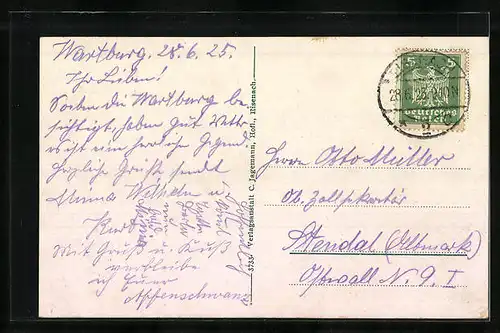 Wartburg, 28.6.25.
Ihr Lieben!
Soeben die Wartburg be
sichtigt, haben gut Wetter
es ist eine herliche Gegend
Herzliche Grüße sendet
Emma Wilhelm u.
Kurt
Mit Gruß u. Kuß
verbleibe
ich Euer
Affenschwanz
3733 Verlagsanstalt C. Jagemann, Hofl., Eisenach.
5 5
Deutsches
Reich
Herrn Otto Müller
Ob. Zollsekretär
Stendal (Altmark)
Ostwall N. 9 I